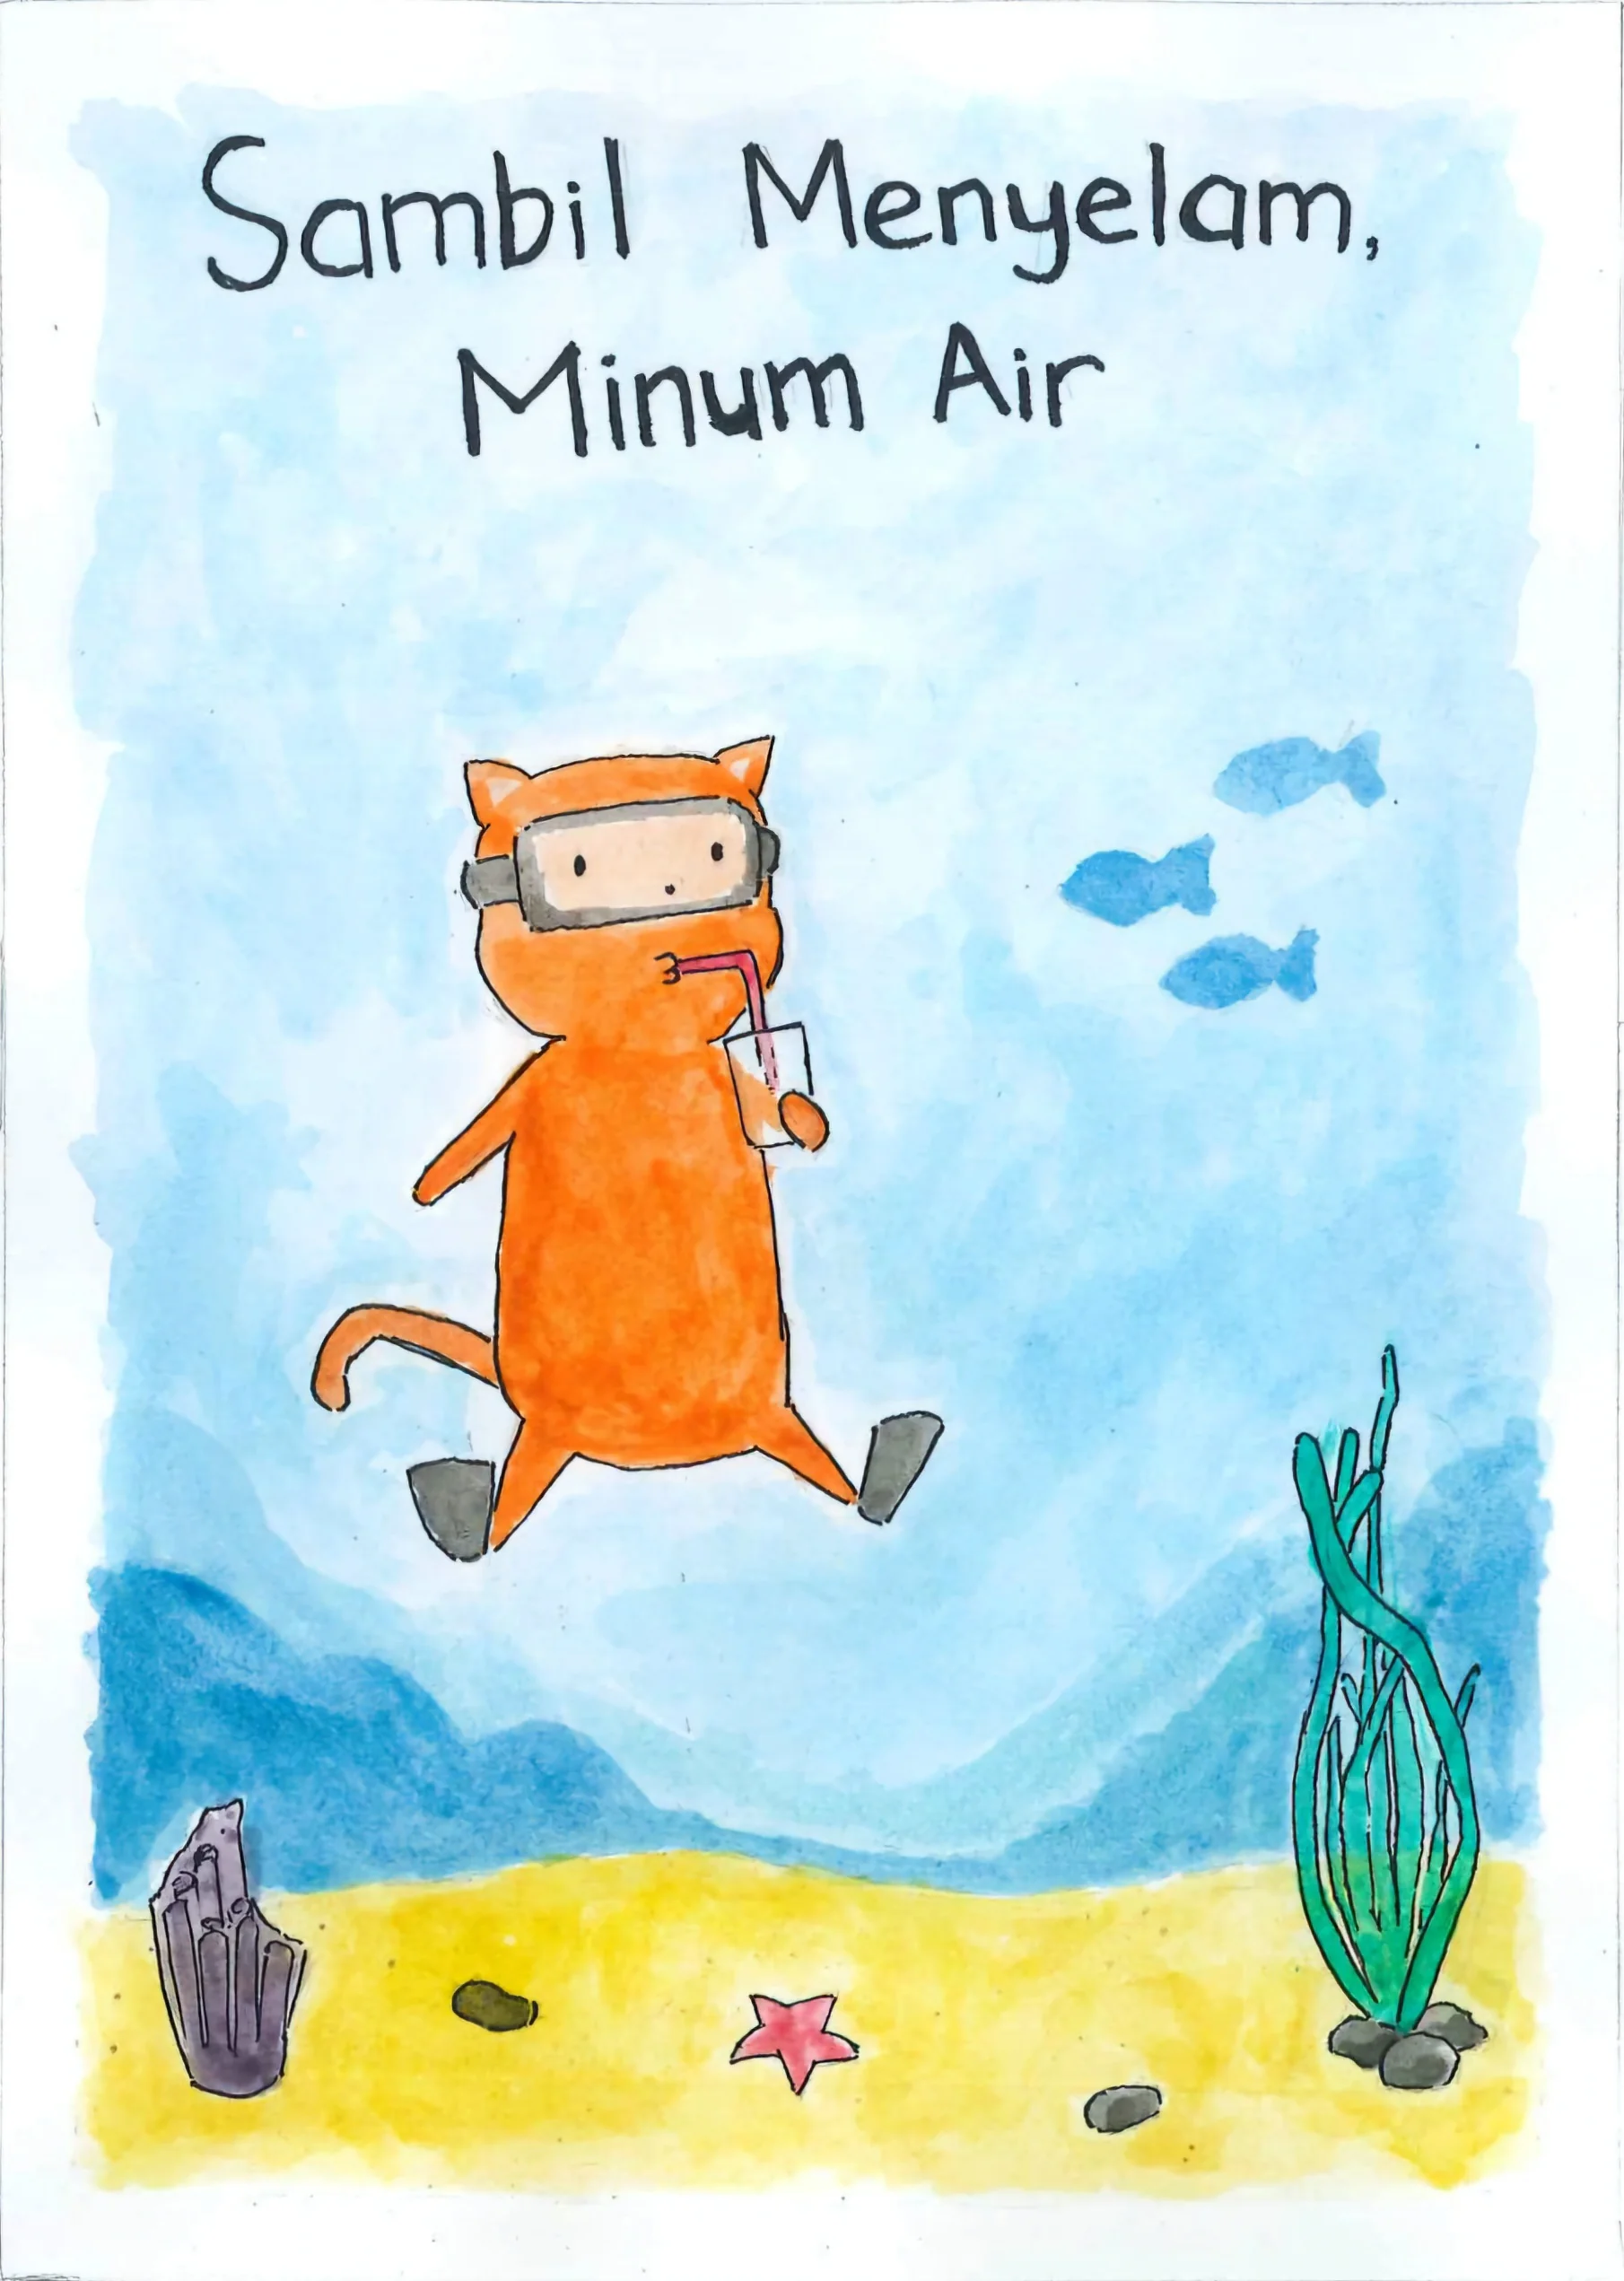 Sambil Menyelam,
Minum Air